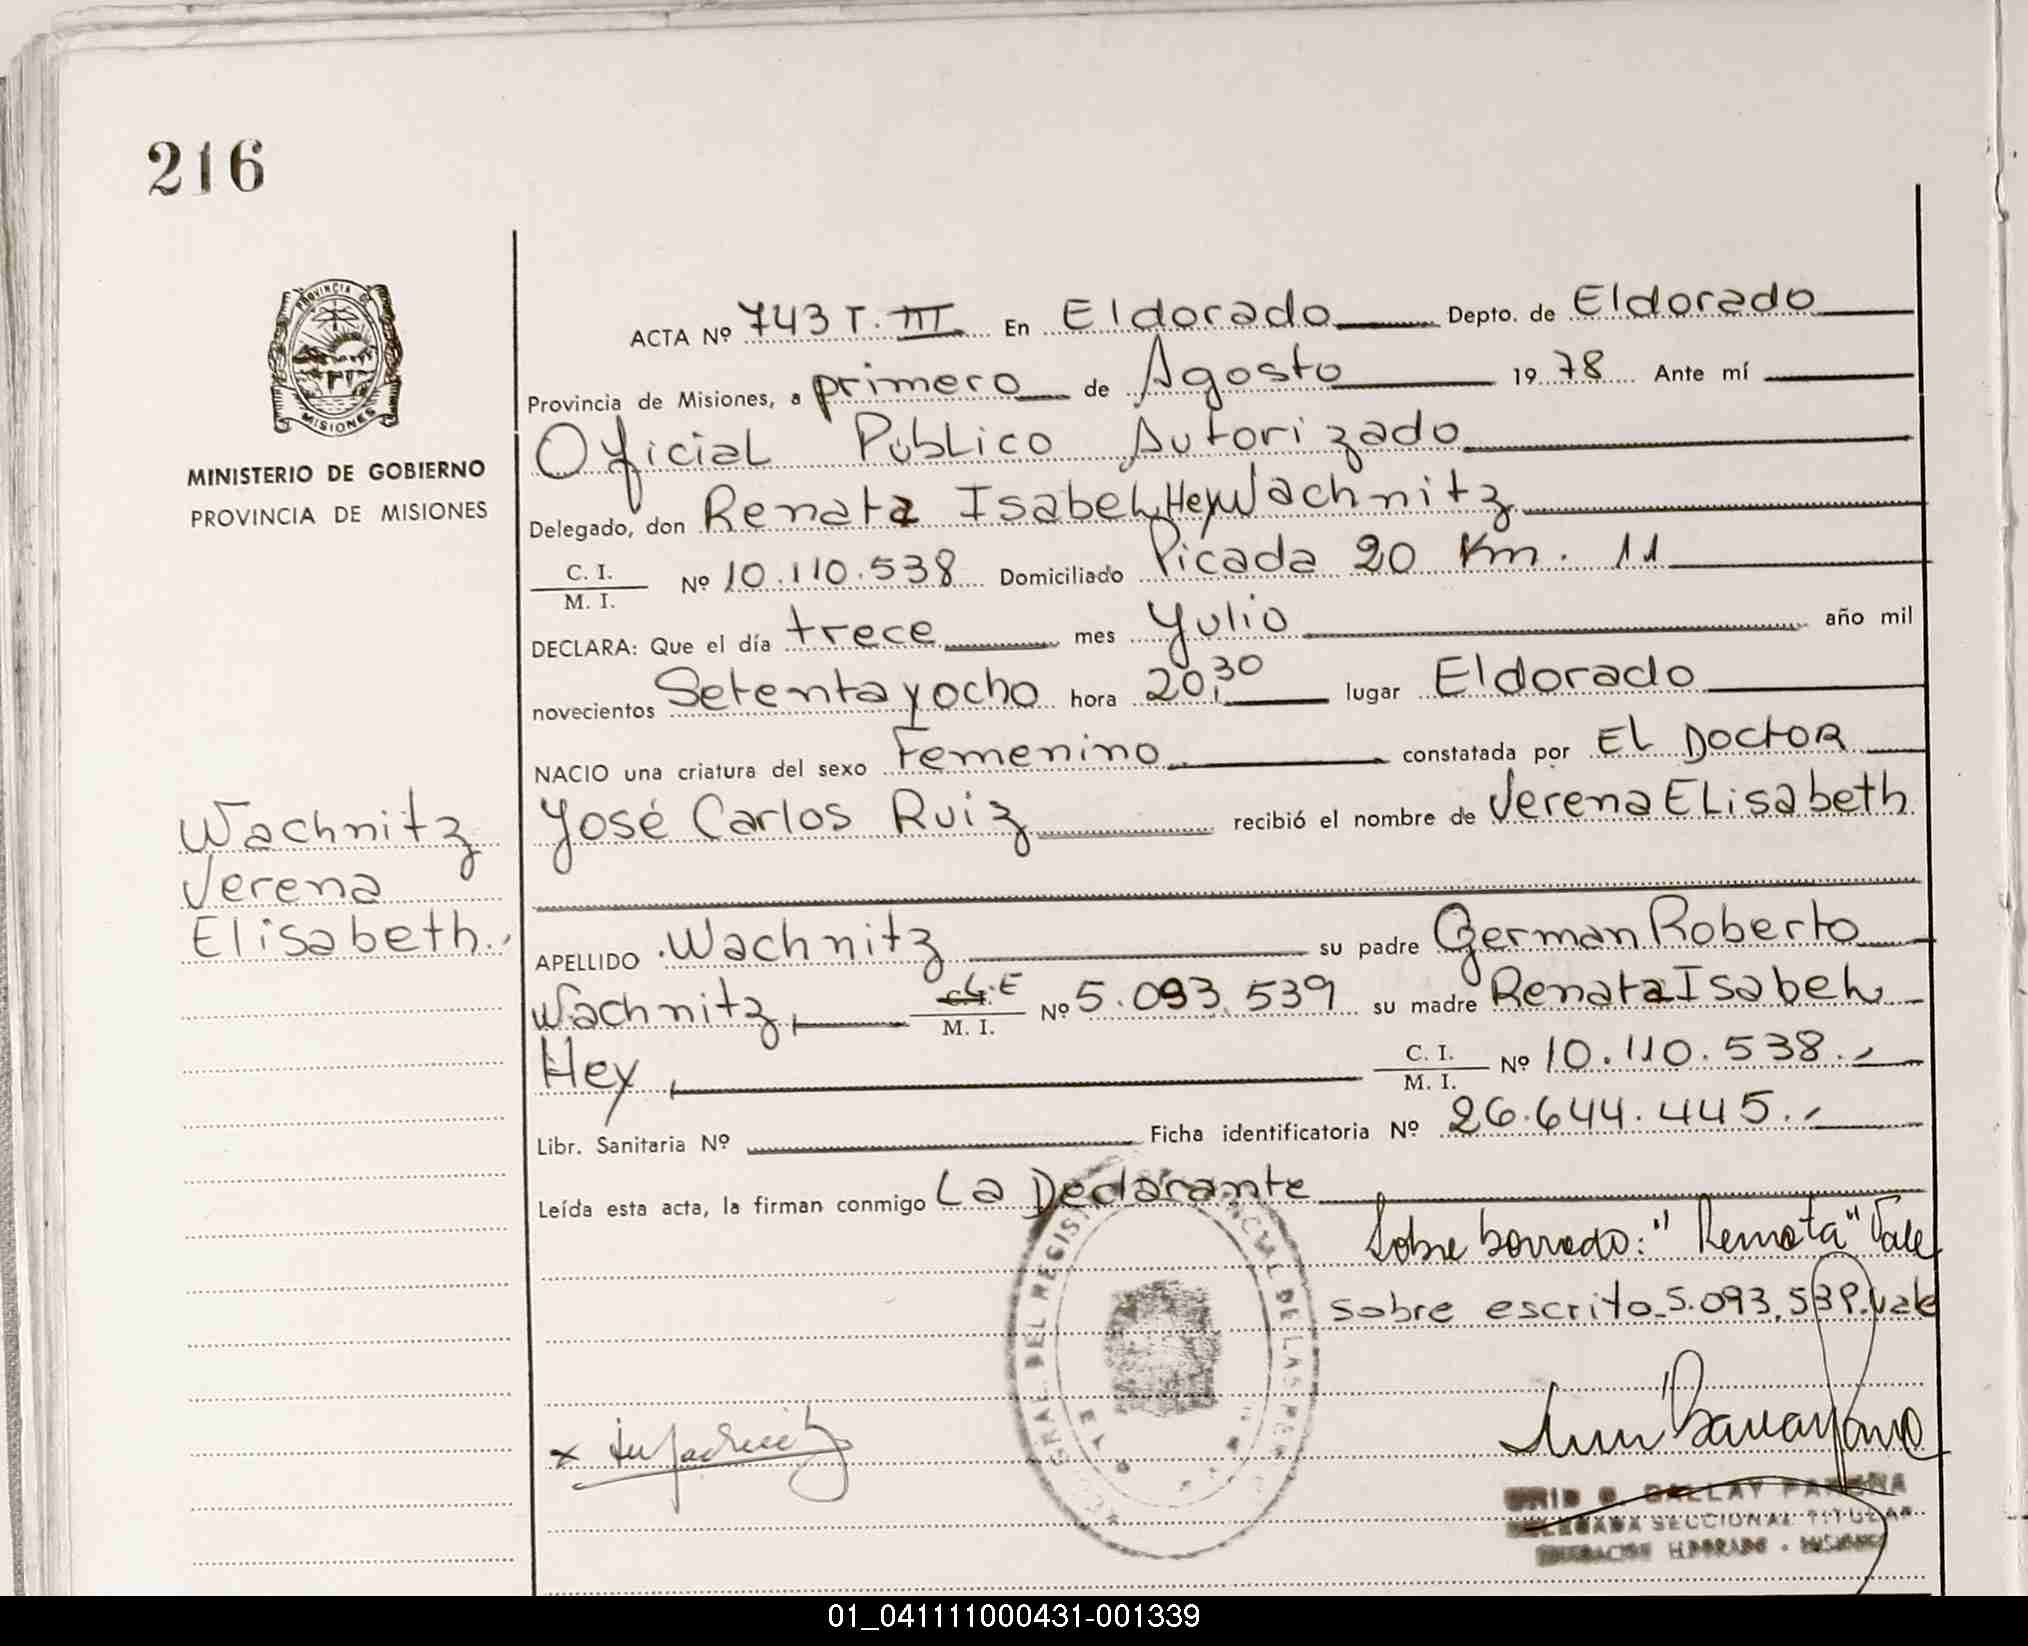 216
PROVINCIA DE
MISIONES
MINISTERIO DE GOBIERNO
PROVINCIA DE MISIONES
Wachnitz
Verena
Elisabeth.
ACTA Nº 743 T. III En Eldorado Depto. de Eldorado
Provincia de Misiones, a primero de Agosto 1978 Ante mí
Oficial Público Autorizado
Delegado, don Renata Isabel Hey Wachnitz
C. I. / M. I. Nº 10.110.538 Domiciliado Picada 20 Km. 11
DECLARA: Que el día trece mes Yulio año mil
novecientos Setenta y ocho hora 20,30 lugar Eldorado
NACIO una criatura del sexo Femenino constatada por El Doctor
José Carlos Ruiz recibió el nombre de Verena Elisabeth
APELLIDO Wachnitz su padre German Roberto
Wachnitz, M. I. Nº 5.093.539 su madre Renata Isabel
Hey, C. I. / M. I. Nº 10.110.538.
Libr. Sanitaria Nº Ficha identificatoria Nº 26.644.445.
Leída esta acta, la firman conmigo La Declarante
Sobre borrado: "Renata" Vale
sobre escrito 5.093.539. Vale
GRAL. DEL REGIST NCIAL DE LAS PER
DELEGADA SECCIONAL TITULAR
ELDORADO - MISIONES
01_041111000431-001339